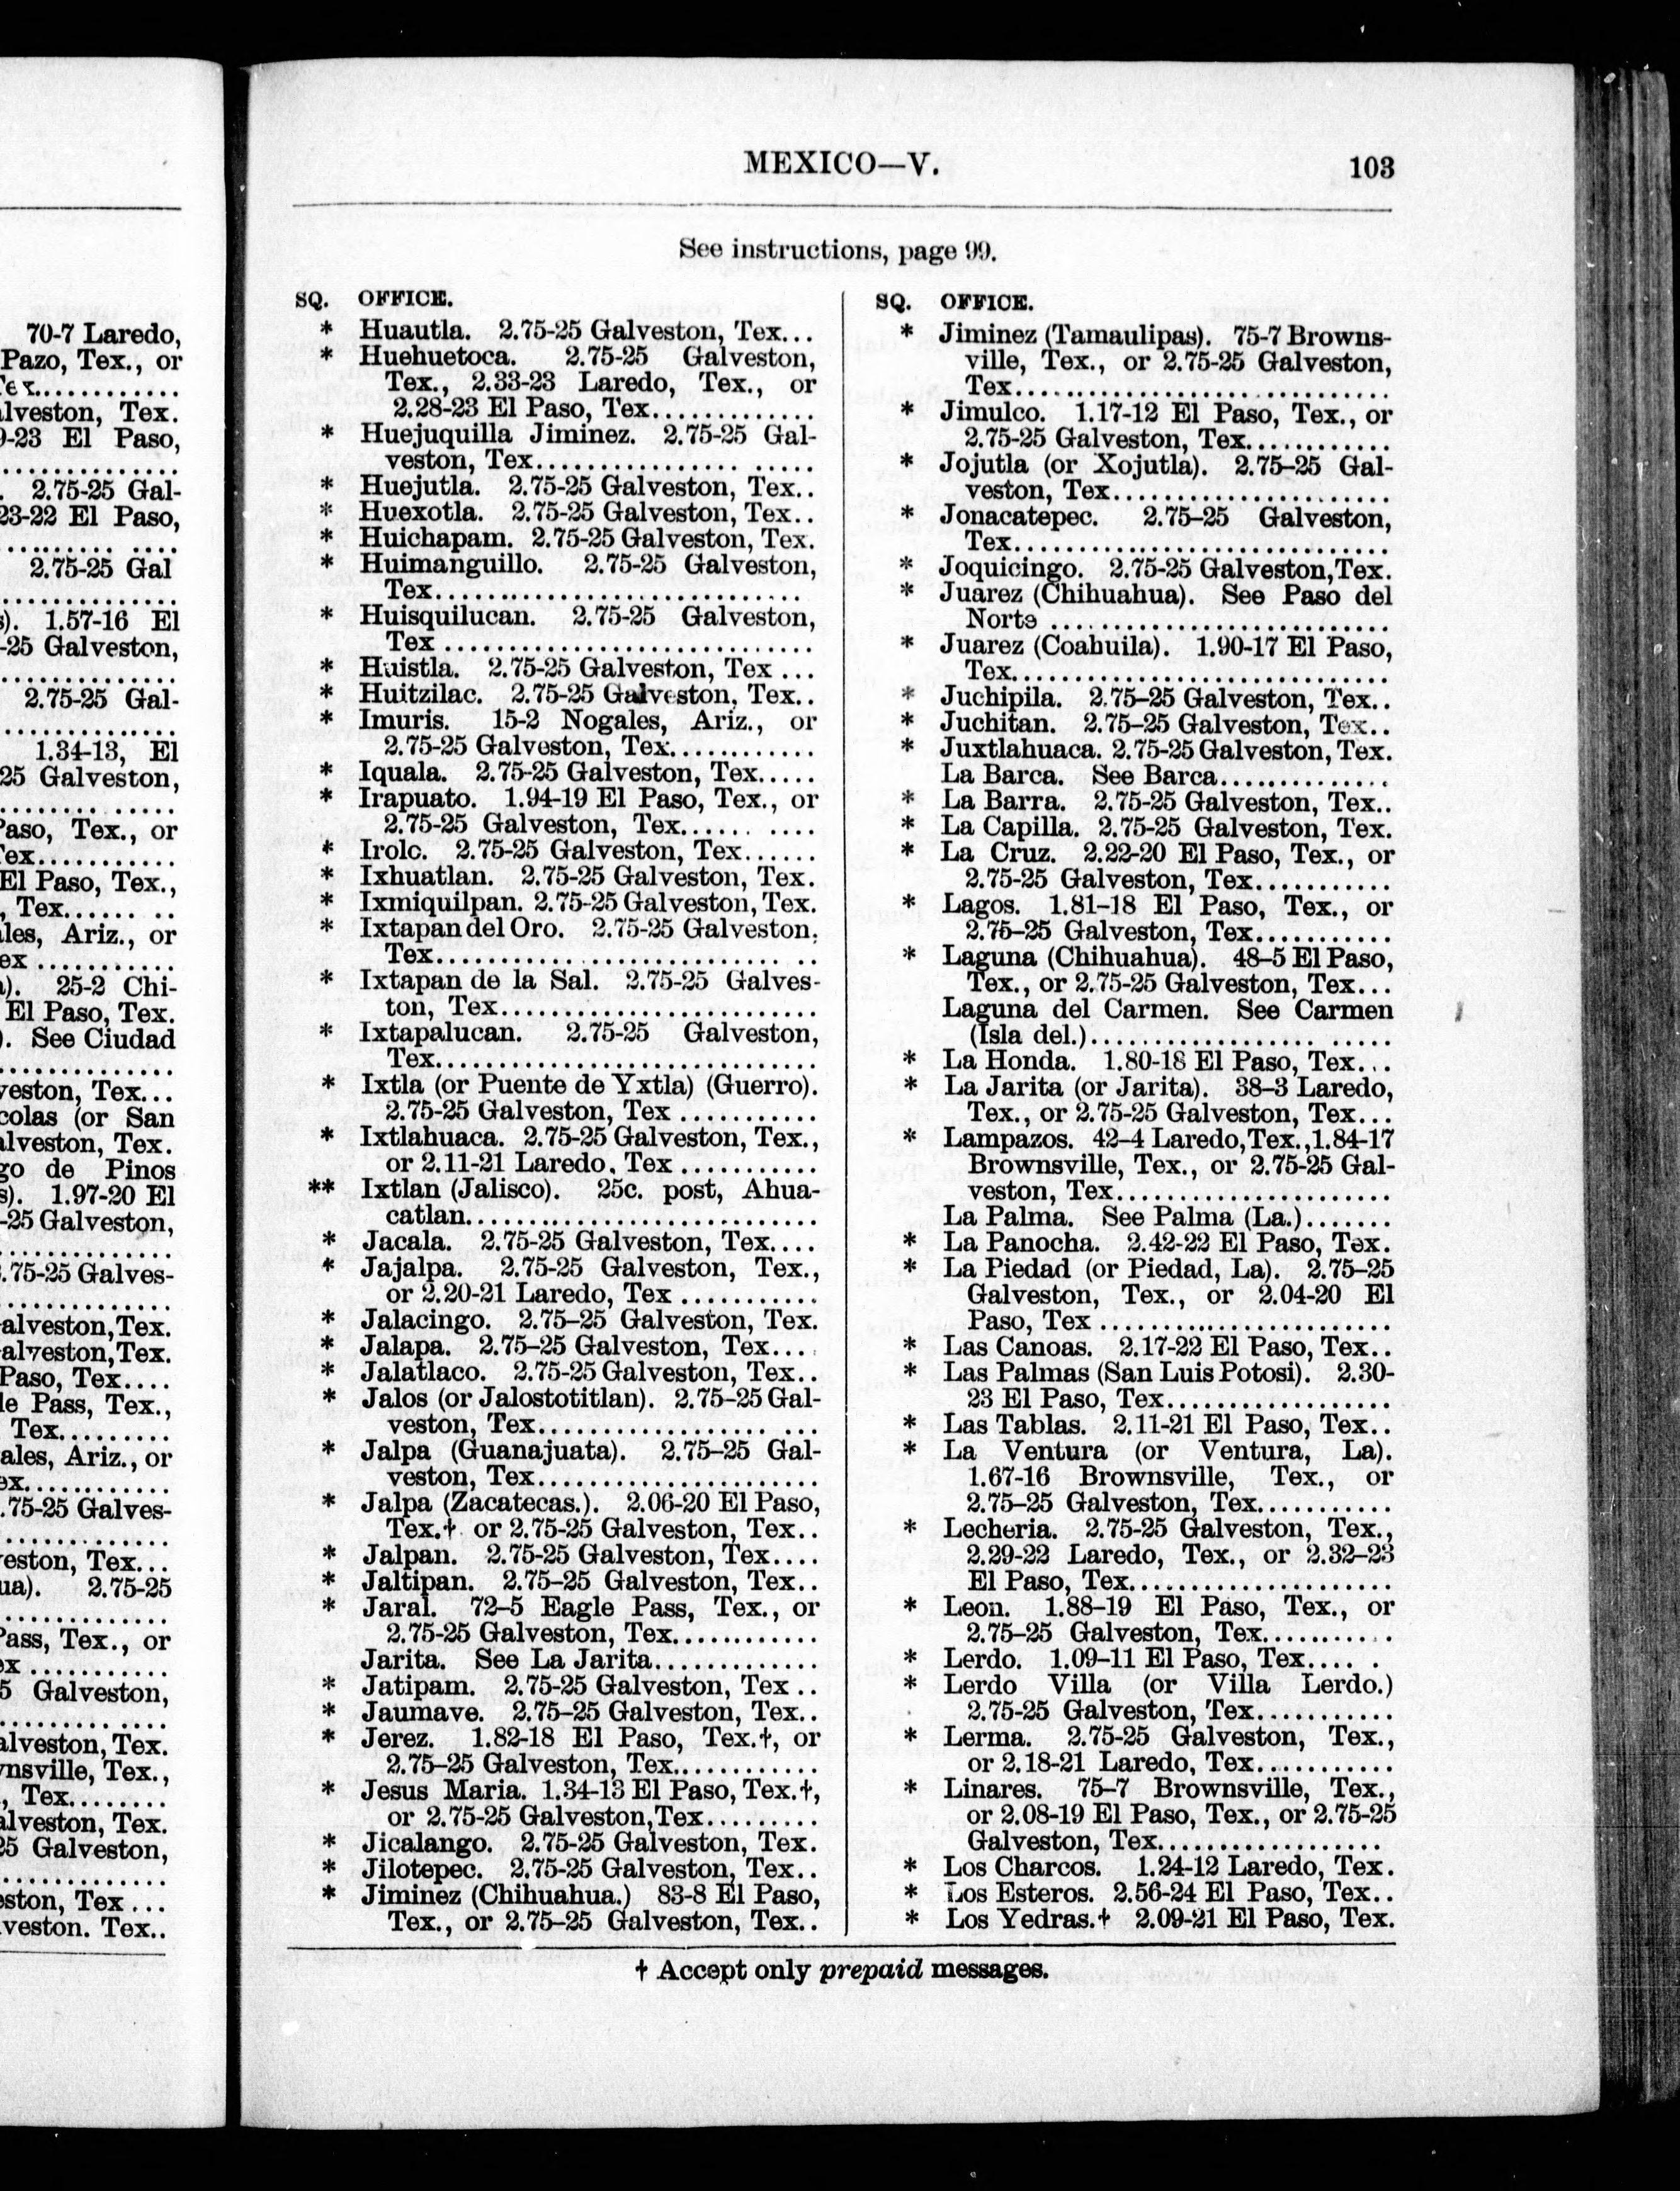 MEXICO—V. 103
See instructions, page 99.
SQ. OFFICE.
* Huautla. 2.75-25 Galveston, Tex...
* Huehuetoca. 2.75-25 Galveston,
Tex., 2.33-23 Laredo, Tex., or
2.28-23 El Paso, Tex.............
* Huejuquilla Jiminez. 2.75-25 Gal-
veston, Tex................ .....
* Huejutla. 2.75-25 Galveston, Tex..
* Huexotla. 2.75-25 Galveston, Tex..
* Huichapam. 2.75-25 Galveston, Tex.
* Huimanguillo. 2.75-25 Galveston,
Tex..............................
* Huisquilucan. 2.75-25 Galveston,
Tex .............................
* Huistla. 2.75-25 Galveston, Tex ...
* Huitzilac. 2.75-25 Galveston, Tex..
* Imuris. 15-2 Nogales, Ariz., or
2.75-25 Galveston, Tex...........
* Iquala. 2.75-25 Galveston, Tex.....
* Irapuato. 1.94-19 El Paso, Tex., or
2.75-25 Galveston, Tex...... ....
* Irolo. 2.75-25 Galveston, Tex......
* Ixhuatlan. 2.75-25 Galveston, Tex.
* Ixmiquilpan. 2.75-25 Galveston, Tex.
* Ixtapan del Oro. 2.75-25 Galveston,
Tex............................ ..
* Ixtapan de la Sal. 2.75-25 Galves-
ton, Tex.........................
* Ixtapalucan. 2.75-25 Galveston,
Tex..............................
* Ixtla (or Puente de Yxtla) (Guerro).
2.75-25 Galveston, Tex ...........
* Ixtlahuaca. 2.75-25 Galveston, Tex.,
or 2.11-21 Laredo, Tex ...........
** Ixtlan (Jalisco). 25c. post, Ahua-
catlan............................
* Jacala. 2.75-25 Galveston, Tex....
* Jajalpa. 2.75-25 Galveston, Tex.,
or 2.20-21 Laredo, Tex ...........
* Jalacingo. 2.75-25 Galveston, Tex.
* Jalapa. 2.75-25 Galveston, Tex....
* Jalatlaco. 2.75-25 Galveston, Tex..
* Jalos (or Jalostotitlan). 2.75-25 Gal-
veston, Tex.................. ...
* Jalpa (Guanajuata). 2.75-25 Gal-
veston, Tex......................
* Jalpa (Zacatecas.). 2.06-20 El Paso,
Tex.† or 2.75-25 Galveston, Tex..
* Jalpan. 2.75-25 Galveston, Tex....
* Jaltipan. 2.75-25 Galveston, Tex..
* Jaral. 72-5 Eagle Pass, Tex., or
2.75-25 Galveston, Tex...........
Jarita. See La Jarita..............
* Jatipam. 2.75-25 Galveston, Tex ..
* Jaumave. 2.75-25 Galveston, Tex..
* Jerez. 1.82-18 El Paso, Tex.†, or
2.75-25 Galveston, Tex...........
* Jesus Maria. 1.34-13 El Paso, Tex.†,
or 2.75-25 Galveston,Tex.........
* Jicalango. 2.75-25 Galveston, Tex.
* Jilotepec. 2.75-25 Galveston, Tex..
* Jiminez (Chihuahua.) 83-8 El Paso,
Tex., or 2.75-25 Galveston, Tex..
SQ. OFFICE.
* Jiminez (Tamaulipas). 75-7 Browns-
ville, Tex., or 2.75-25 Galveston,
Tex..................... ..........
* Jimulco. 1.17-12 El Paso, Tex., or
2.75-25 Galveston, Tex............
* Jojutla (or Xojutla). 2.75-25 Gal-
veston, Tex.......................
* Jonacatepec. 2.75-25 Galveston,
Tex...............................
* Joquicingo. 2.75-25 Galveston,Tex.
* Juarez (Chihuahua). See Paso del
Norte ............................
* Juarez (Coahuila). 1.90-17 El Paso,
Tex...............................
* Juchipila. 2.75-25 Galveston, Tex..
* Juchitan. 2.75-25 Galveston, Tex..
* Juxtlahuaca. 2.75-25 Galveston, Tex.
La Barca. See Barca...............
* La Barra. 2.75-25 Galveston, Tex..
* La Capilla. 2.75-25 Galveston, Tex.
* La Cruz. 2.22-20 El Paso, Tex., or
2.75-25 Galveston, Tex...........
* Lagos. 1.81-18 El Paso, Tex., or
2.75-25 Galveston, Tex...........
* Laguna (Chihuahua). 48-5 El Paso,
Tex., or 2.75-25 Galveston, Tex...
Laguna del Carmen. See Carmen
(Isla del.).................. .....
* La Honda. 1.80-18 El Paso, Tex...
* La Jarita (or Jarita). 38-3 Laredo,
Tex., or 2.75-25 Galveston, Tex...
* Lampazos. 42-4 Laredo,Tex.,1.84-17
Brownsville, Tex., or 2.75-25 Gal-
veston, Tex.......................
La Palma. See Palma (La.).......
* La Panocha. 2.42-22 El Paso, Tex.
* La Piedad (or Piedad, La). 2.75-25
Galveston, Tex., or 2.04-20 El
Paso, Tex ........................
* Las Canoas. 2.17-22 El Paso, Tex..
* Las Palmas (San Luis Potosi). 2.30-
23 El Paso, Tex...................
* Las Tablas. 2.11-21 El Paso, Tex..
* La Ventura (or Ventura, La).
1.67-16 Brownsville, Tex., or
2.75-25 Galveston, Tex...........
* Lecheria. 2.75-25 Galveston, Tex.,
2.29-22 Laredo, Tex., or 2.32-23
El Paso, Tex......................
* Leon. 1.88-19 El Paso, Tex., or
2.75-25 Galveston, Tex...........
* Lerdo. 1.09-11 El Paso, Tex.... .
* Lerdo Villa (or Villa Lerdo.)
2.75-25 Galveston, Tex...........
* Lerma. 2.75-25 Galveston, Tex.,
or 2.18-21 Laredo, Tex............
* Linares. 75-7 Brownsville, Tex.,
or 2.08-19 El Paso, Tex., or 2.75-25
Galveston, Tex..................
* Los Charcos. 1.24-12 Laredo, Tex.
* Los Esteros. 2.56-24 El Paso, Tex..
* Los Yedras.† 2.09-21 El Paso, Tex.
† Accept only prepaid messages.